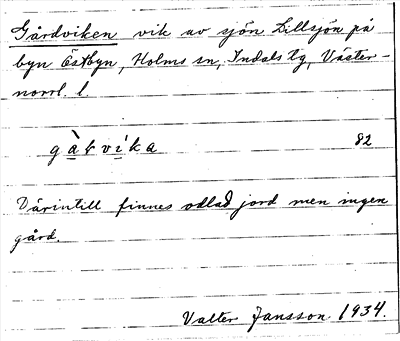 Gårdviken vik av sjön Lillsjön på
byn Östbyn, Holms sn, Indals tg, Väster-
norrl. l.
82
Därintill finnes odlad jord men ingen
gård.
Valter Jansson 1934.